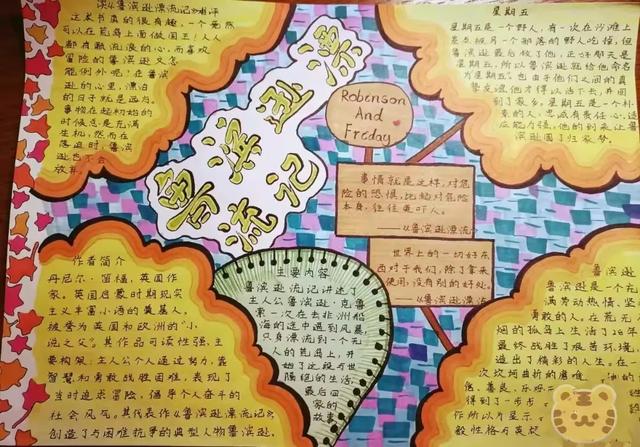 读《鲁滨逊漂流记》有评
这本书真的很有趣，一个竟然
可以在荒岛上面做国王！人人
都有飘流浪的心，而喜欢
冒险的鲁滨逊又怎
能例外呢？在鲁滨
逊的心里，漂泊
的日子就是远方。
事物在起初始的
时候总是充满
生机，然而在
落迫时，鲁滨
逊也不会
放弃。
鲁滨逊漂
流记
Robenson
And
Freday
星期五
星期五是一个野人，有一次在沙滩上
差点被另一个部落的野人吃掉，但
鲁滨逊最后救了他，正好那天是
星期五，所以鲁滨逊就给他命名
为星期五，也由于他们之间的真
挚友谊他才得以活下去，并回
到了家乡，星期五是一个朴
素的人，忠诚有责任心，适
应能力强，他的到来让鲁
滨逊圆了归家梦。
事情就是这样，对危
险的恐惧，比起对危险
本身，往往更吓人。
——《鲁滨逊漂流
世界上的一切好东
西对于我们，除了拿来
使用，没有别的好处。
——《鲁滨逊漂流
作者简介
丹尼尔·笛福，英国作
家。英国启蒙时期现实
主义丰富小说的奠基人，
被誉为英国和欧洲的“小
说之父”。其作品可读性强，主
要构架，主人公个人通过努力，靠
智慧和勇敢战胜困难，表现了
当时追求冒险，倡导个人奋斗的
社会风气。其代表作《鲁滨逊漂流记》
创造了与困难抗争的典型人物鲁滨逊。
主要内容
鲁滨逊流记讲述了
主人公鲁滨逊·克鲁
索一次在去非洲航
海的途中遇到风暴，
只身漂流到一个无
人的荒岛上，并开
始了一段与世
隔绝的生活，
最后回
家的
故事
鲁滨逊
鲁滨逊是一个充
满劳动热情，坚
勇敢的人，在荒无
烟的孤岛上生活了28年
最终战胜了艰苦环境，
造出了精彩的人生。在一
次次坎坷曲折的磨
得到了一步步
作所以为显示
毅性格与英